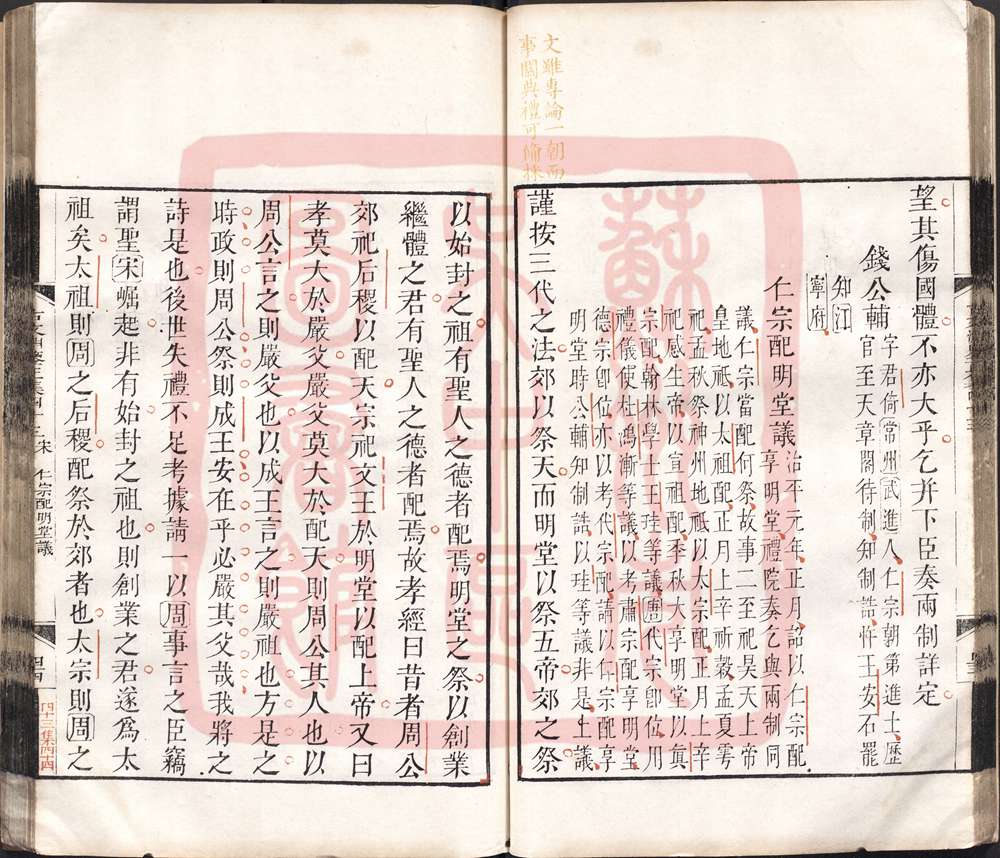 文雖專論一朝而
事關典禮可備採
望其傷國體不亦大乎乞并下臣奏兩制詳定
錢公輔
字君倚常州武進人仁宗朝第進士歷
官至天章閣待制知制誥忤王安石罷
知江
寧府
仁宗配明堂議
治平元年正月詔以仁宗配
享明堂禮院奏乞與兩制同
議仁宗當配何祭故事二至祀昊天上帝
皇地祇以太祖配正月上辛祈穀孟夏雩
祀孟秋祭神州地祇以太宗配正月上辛
祀感生帝以宣祖配季秋大享明堂以眞
宗配翰林學士王珪等議唐代宗卽位用
禮儀使杜鴻漸等議以考肅宗配享明堂
德宗卽位亦以考代宗配請以仁宗配享
明堂時公輔知制誥以珪等議非是上議
謹按三代之法郊以祭天而明堂以祭五帝郊之祭
以始封之祖有聖人之德者配焉明堂之祭以創業
繼體之君有聖人之德者配焉故孝經曰昔者周公
郊祀后稷以配天宗祀文王於明堂以配上帝又曰
孝莫大於嚴父嚴父莫大於配天則周公其人也以
周公言之則嚴父也以成王言之則嚴祖也方是之
時政則周公祭則成王安在乎必嚴其父哉我將之
詩是也後世失禮不足考據請一以周事言之臣竊
謂聖宋崛起非有始封之祖也則創業之君遂爲太
祖矣太祖則周之后稷配祭於郊者也太宗則周之
宋 仁宗配明堂議
四十三集四十四